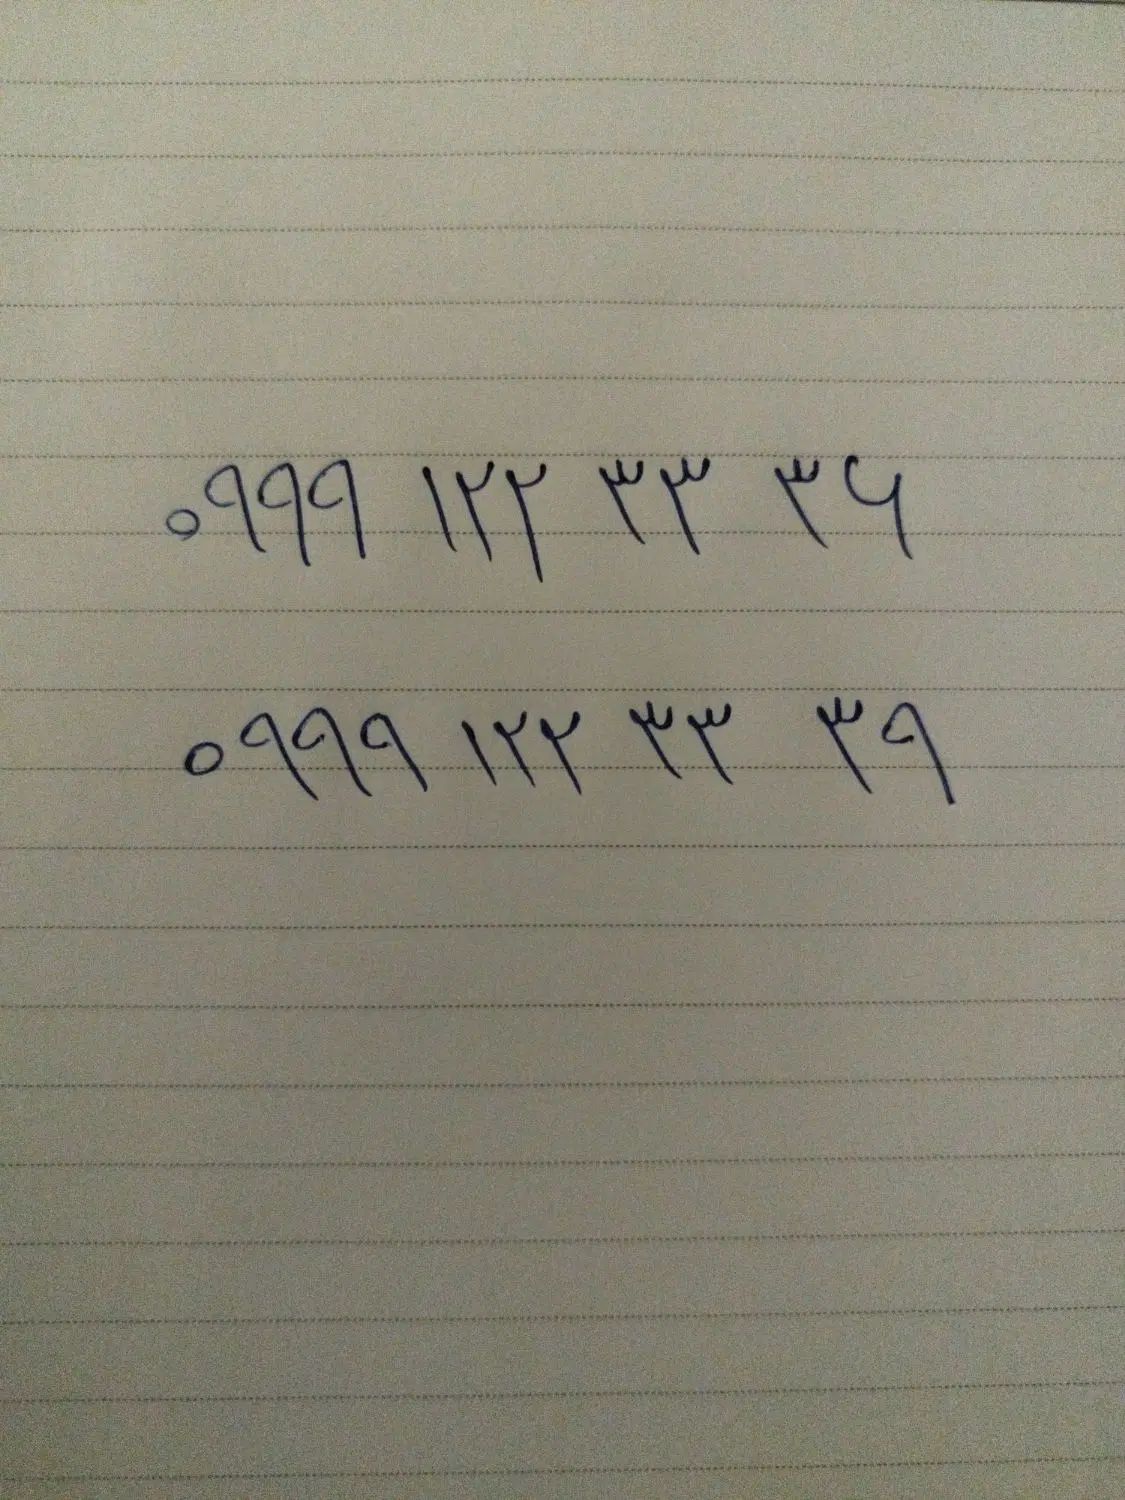 ۰۹۹۹ ۱۲۲ ۳۳ ۳۶
۰۹۹۹ ۱۲۲ ۳۳ ۳۹